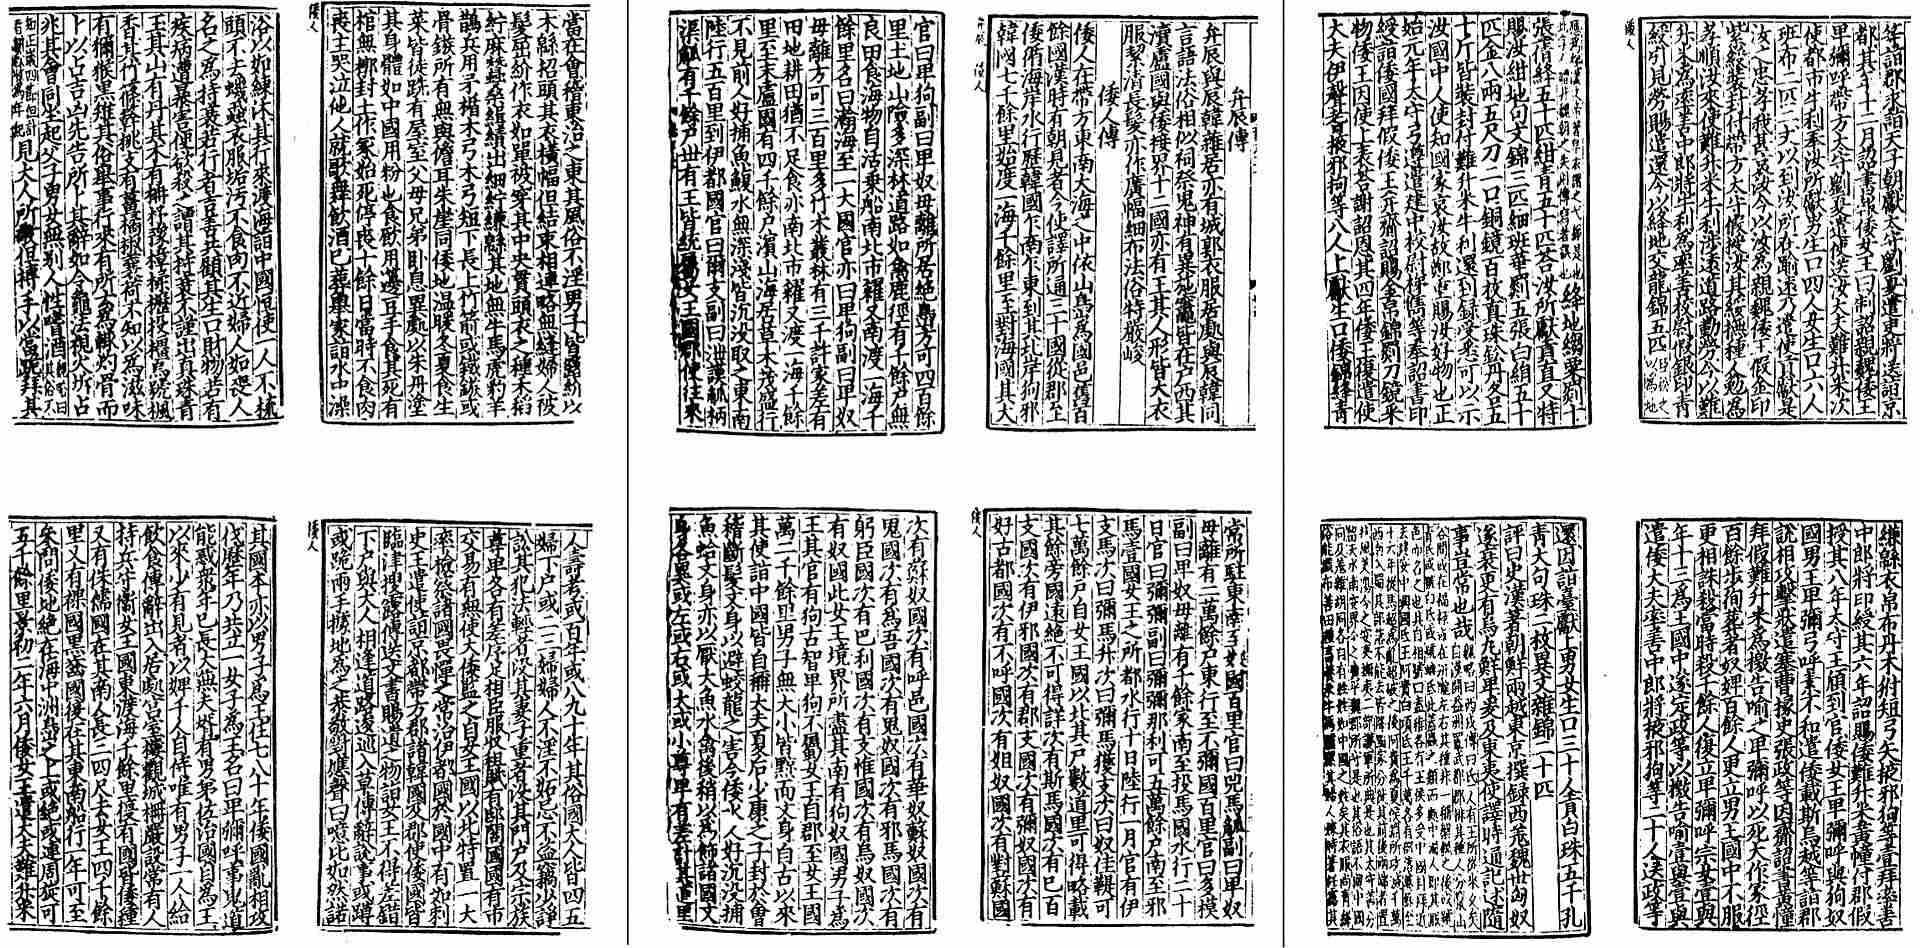 弁辰傳
弁辰與辰韓雜居亦有城郭衣服居處與辰韓同
言語法俗相似祠祭鬼神有異施竈皆在戶西其
瀆盧國與倭接界十二國亦有王其人形皆大衣
服絜清長髮亦作廣幅細布法俗特嚴峻
倭人傳
倭人在帶方東南大海之中依山島為國邑舊百
餘國漢時有朝見者今使譯所通三十國從郡至
倭循海岸水行歷韓國乍南乍東到其北岸狗邪
韓國七千餘里始度一海千餘里至對海國其大
官曰卑狗副曰卑奴母離所居絕島方可四百餘
里土地山險多深林道路如禽鹿徑有千餘戶無
良田食海物自活乗船南北市糴又南渡一海千
餘里名曰瀚海至一大國官亦曰卑狗副曰卑奴
母離方可三百里多竹木叢林有三千許家差有
田地耕田猶不足食亦南北市糴又渡一海千餘
里至末盧國有四千餘戶濱山海居草木茂盛行
不見前人好捕魚鰒水無深淺皆沈沒取之東南
陸行五百里到伊都國官曰爾支副曰泄謨觚柄
渠觚有千餘戶世有王皆統屬女王國郡使往來
常所駐東南至奴國百里官曰兕馬觚副曰卑奴
母離有二萬餘戶東行至不彌國百里官曰多模
副曰卑奴母離有千餘家南至投馬國水行二十
日官曰彌彌副曰彌彌那利可五萬餘戶南至邪
馬壹國女王之所都水行十日陸行一月官有伊
支馬次曰彌馬升次曰彌馬獲支次曰奴佳鞮可
七萬餘戶自女王國以北其戶數道里可得略載
其餘旁國遠絕不可得詳次有斯馬國次有已百
支國次有伊邪國次有都支國次有彌奴國次有
好古都國次有不呼國次有姐奴國次有對蘇國
次有蘇奴國次有呼邑國次有華奴蘇奴國次有
鬼國次有為吾國次有鬼奴國次有邪馬國次有
躬臣國次有巴利國次有支惟國次有烏奴國次
有奴國此女王境界所盡其南有狗奴國男子為
王其官有狗古智卑狗不屬女王自郡至女王國
萬二千餘里男子無大小皆黥面文身自古以來
其使詣中國皆自稱大夫夏后少康之子封於會
稽斷髮文身以避蛟龍之害今倭水人好沉沒捕
魚蛤文身亦以厭大魚水禽後稍以為飾諸國文
身各異或左或右或大或小尊卑有差計其道里
當在會稽東治之東其風俗不淫男子皆露紒以
木緜招頭其衣橫幅但結束相連略無縫婦人被
髮屈紒作衣如單被穿其中央貫頭衣之種禾稻
紵麻蠶桑緝績出細紵縑緜其地無牛馬虎豹羊
鵲兵用矛楯木弓木弓短下長上竹箭或鐵鏃或
骨鏃所有無與儋耳朱崖同倭地溫暖冬夏食生
菜皆徒跣有屋室父母兄弟臥息異處以朱丹塗
其身體如中國用粉也食飲用籩豆手食其死有
棺無槨封土作冢始死停喪十餘日當時不食肉
喪主哭泣他人就歌舞飲酒已葬舉家詣水中澡
浴以如練沐其行來渡海詣中國恒使一人不梳
頭不去蟣蝨衣服垢污不食肉不近婦人如喪人
名之為持衰若行者吉善共顧其生口財物若有
疾病遭暴害便欲殺之謂其持衰不謹出真珠青
玉其山有丹其木有柟杼豫樟楺櫪投橿烏號楓
香其竹篠簳桃支有薑橘椒蘘荷不知以為滋味
有獮猴黑雉其俗舉事行來有所云為輒灼骨而
卜以占吉凶先告所卜其辭如令龜法視火坼占
兆其會同坐起父子男女無別人性嗜酒魏略曰其俗不知
正歲四節但計春耕秋收為年紀見大人所敬但搏手以當跪拜其
人壽考或百年或八九十年其俗國大人皆四五
婦下戶或二三婦婦人不淫不妒忌不盜竊少諍
訟其犯法輕者沒其妻子重者沒其門戶及宗族
尊卑各有差序足相臣服收租賦有邸閣國國有市
交易有無使大倭監之自女王國以北特置一大
率檢察諸國畏憚之常治伊都國於國中有如刺
史王遣使詣京都帶方郡諸韓國及郡使倭國皆
臨津搜露傳送文書賜遺之物詣女王不得差錯
下戶與大人相逢道路逡巡入草傳辭說事或蹲
或跪兩手據地為之恭敬對應聲曰噫比如然諾
其國本亦以男子為王住七八十年倭國亂相攻
伐歷年乃共立一女子為王名曰卑彌呼事鬼道
能惑眾年已長大無夫壻有男弟佐治國自為王
以來少有見者以婢千人自侍唯有男子一人給
飲食傳辭出入居處宮室樓觀城柵嚴設常有人
持兵守衛女王國東渡海千餘里復有國皆倭種
又有侏儒國在其南人長三四尺去女王四千餘
里又有裸國黑齒國復在其東南船行一年可至
參問倭地絕在海中洲島之上或絕或連周旋可
五千餘里景初二年六月倭女王遣大夫難升米
等詣郡求詣天子朝獻太守劉夏遣吏將送詣京
都其年十二月詔書報倭女王曰制詔親魏倭王
卑彌呼帶方太守劉夏遣使送汝大夫難升米次
使都市牛利奉汝所獻男生口四人女生口六人
班布二匹二丈以到汝所在踰遠乃遣使貢獻是
汝之忠孝我甚哀汝今以汝為親魏倭王假金印
紫綬裝封付帶方太守假授汝其綏撫種人勉為
孝順汝來使難升米牛利涉遠道路勤勞今以難
升米為率善中郎將牛利為率善校尉假銀印青
綬引見勞賜遣還今以絳地交龍錦五匹
絳地縐粟罽十
張蒨絳五十匹紺青五十匹荅汝所獻貢直又特
賜汝紺地句文錦三匹細班華罽五張白絹五十
匹金八兩五尺刀二口銅鏡百枚真珠鉛丹各五
十斤皆裝封付難升米牛利還到錄受悉可以示
汝國中人使知國家哀汝故鄭重賜汝好物也正
始元年太守弓遵遣建中校尉梯儁等奉詔書印
綬詣倭國拜假倭王并齎詔賜金帛錦罽刀鏡采
物倭王因使上表荅謝詔恩其四年倭王復遣使
大夫伊聲耆掖邪狗等八人上獻生口倭錦絳青
縑緜衣帛布丹木𤝔短弓矢掖邪狗等壹拜率善
中郎將印綬其六年詔賜倭難升米黃幢付郡假
授其八年太守王頎到官倭女王卑彌呼與狗奴
國男王卑彌弓呼素不和遣倭載斯烏越等詣郡
說相攻擊狀遣塞曹掾史張政等因齎詔書黃幢
拜假難升米為檄告喻之卑彌呼以死大作冢徑
百餘步狥葬者奴婢百餘人更立男王國中不服
更相誅殺當時殺千餘人復立卑彌呼宗女壹與
年十三為王國中遂定政等以檄告喻壹與壹與
遣倭大夫率善中郎將掖邪狗等二十人送政等
還因詣臺獻上男女生口三十人貢白珠五千孔
青大句珠二枚異文雜錦二十匹
評曰史漢著朝鮮兩越東京撰錄西羌魏世匈奴
遂衰更有烏丸鮮卑爰及東夷使譯時通記述隨
事豈常也哉